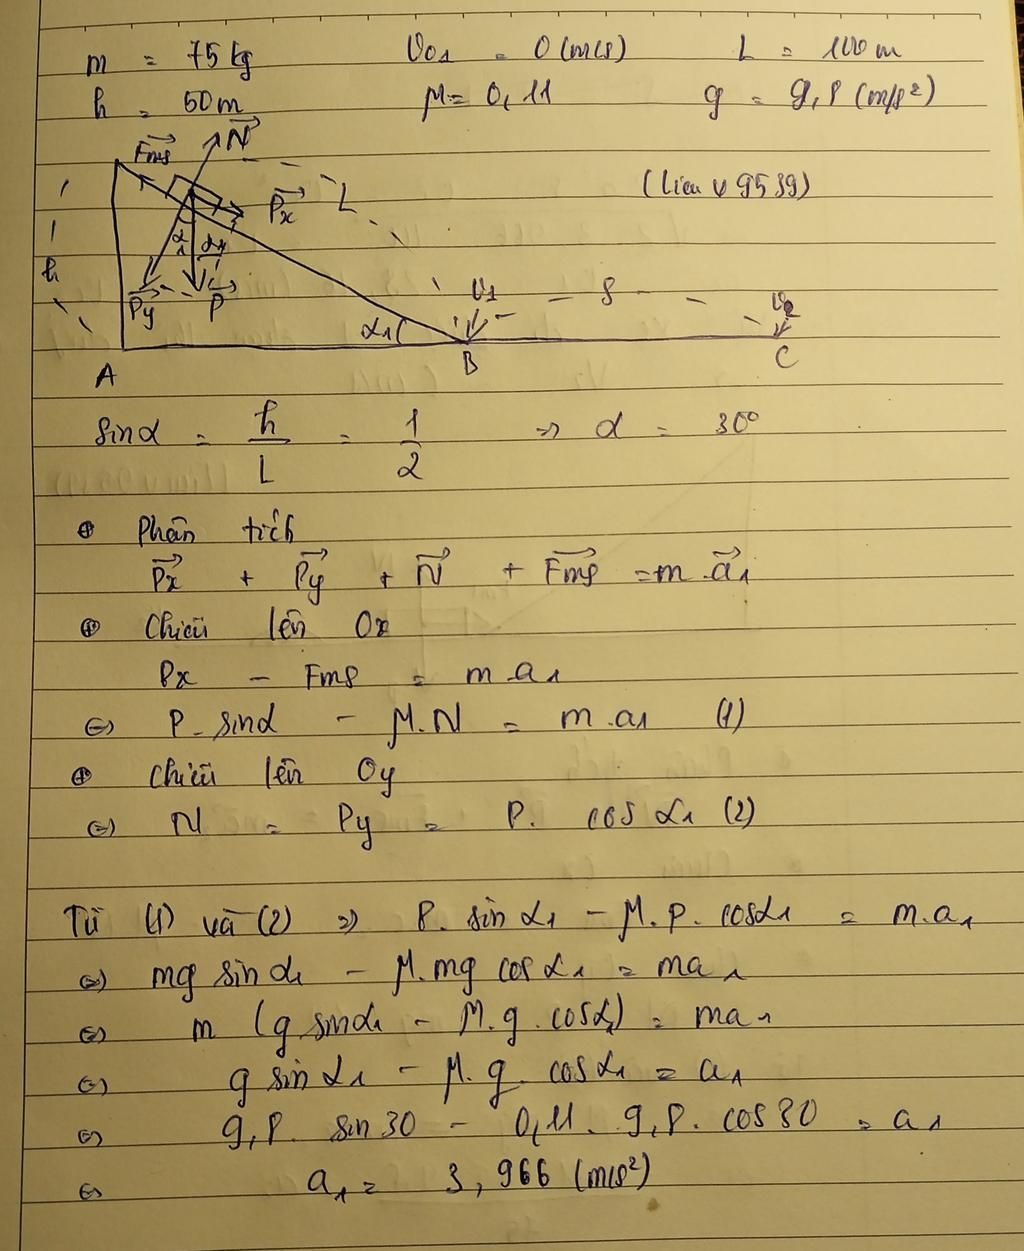 m = 75 kg V01 = 0 (m/s) L = 100 m
h = 50 m μ = 0,11 g = 9,8 (m/s²)
Fms N
Px L (lieu v 9539)
h α1 α1
Py P V1 S V2
α1
A B C
sinα = h/L = 1/2 => α = 30°
⊕ Phân tích
Px + Py + N + Fms = m.a1
⊕ Chiếu lên Ox
Px - Fms = m.a1
<=> P.sinα - μ.N = m.a1 (1)
⊕ Chiếu lên Oy
<=> N = Py = P. cos α1 (2)
Từ (1) và (2) => P. sin α1 - μ.P. cosα1 = m.a1
<=> mg sin α1 - μ.mg cos α1 = ma1
<=> m (g sinα1 - μ.g.cosα1) = ma1
<=> g sin α1 - μ.g. cosα1 = a1
<=> 9,8. sin 30 - 0,11. 9,8. cos 30 = a1
<=> a1 = 3,966 (m/s²)